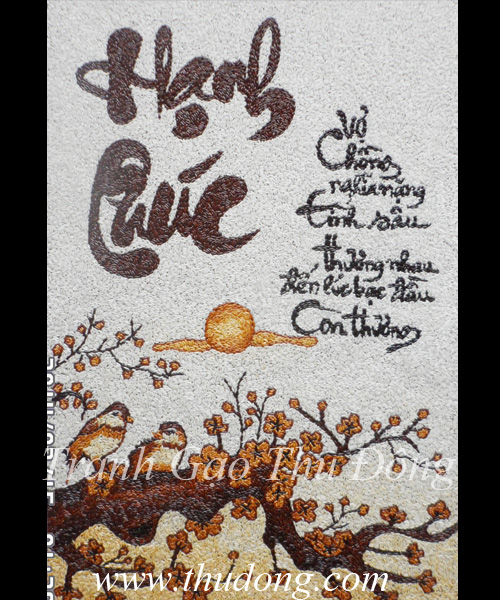 Hạnh
Phúc
Vợ
Chồng
nghĩa nặng
tình sâu
thương nhau
đến lúc bạc đầu
Còn thương
Tranh Gạo Thu Dong
www.thudong.com